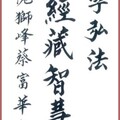 弘法
經藏智慧
獅峰蔡富華